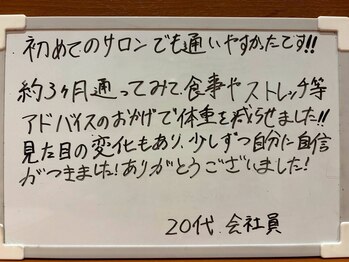 初めてのサロンでも通いやすかったです!!
約3ヶ月通ってみて、食事やストレッチ等
アドバイスのおかげで体重を減らせました!!
見た目の変化もあり、少しずつ自分に自信
がつきました!ありがとうございました!
20代 会社員